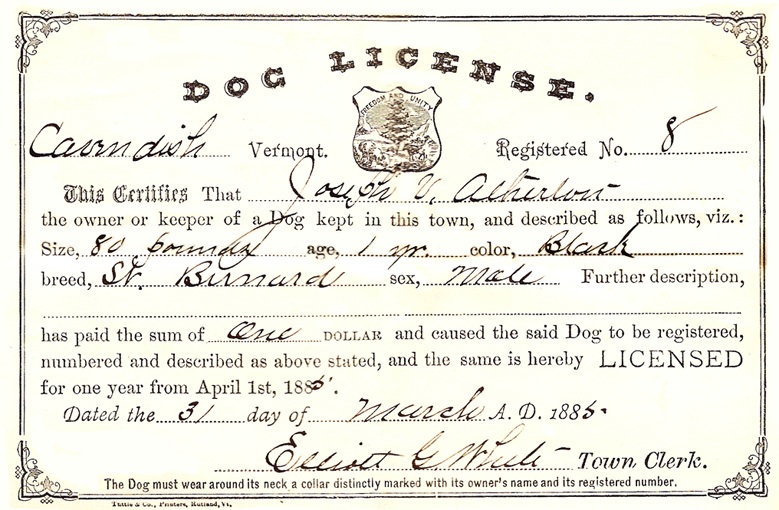 DOG LICENSE.
FREEDOM AND UNITY
Cavendish Vermont. Registered No. 8
This Certifies That Joseph V. Atherton
the owner or keeper of a Dog kept in this town, and described as follows, viz.:
Size, 80 pounds age, 1 yr. color, Black
breed, St. Birnard sex, Male Further description,
has paid the sum of One DOLLAR and caused the said Dog to be registered,
numbered and described as above stated, and the same is hereby LICENSED
for one year from April 1st, 1885.
Dated the 31 day of March A. D. 1885.
Elliott G White Town Clerk.
The Dog must wear around its neck a collar distinctly marked with its owner's name and its registered number.
Tuttle & Co., Printers, Rutland, Vt.